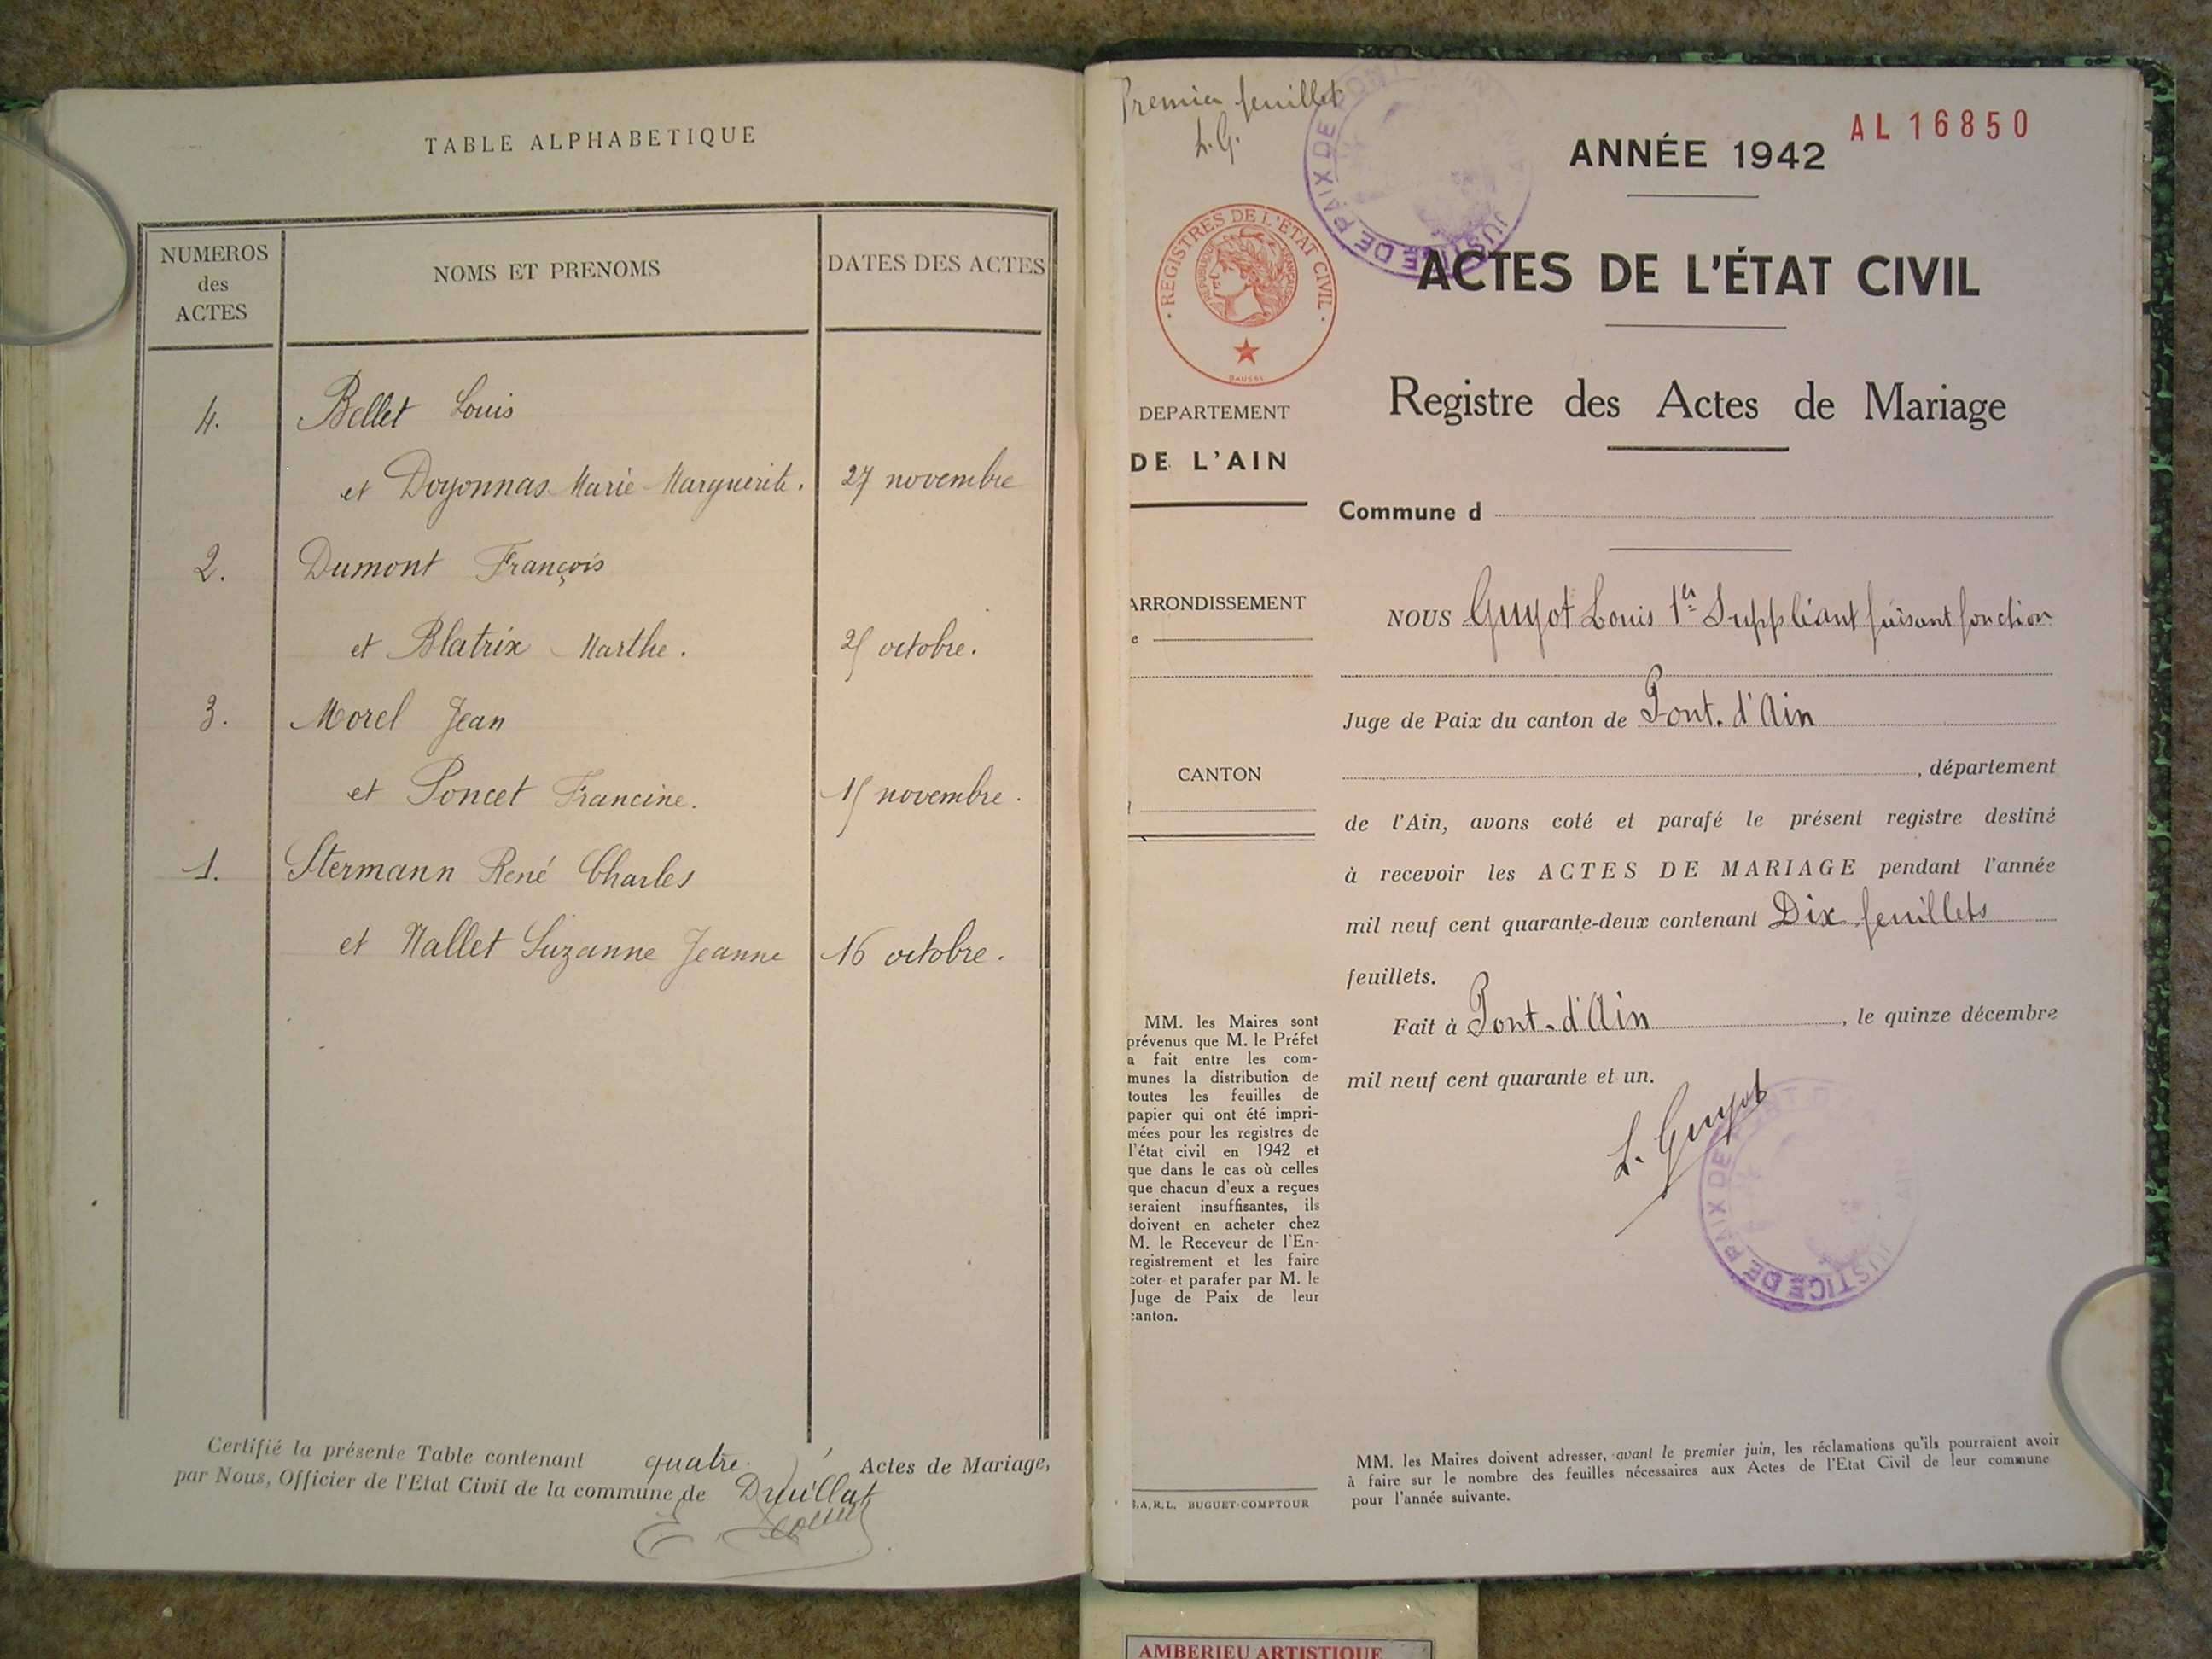 TABLE ALPHABETIQUE
NUMEROS
des
ACTES
NOMS ET PRENOMS
DATES DES ACTES
4.
Bellet Louis
et Doyonnas Marie Marguerite.
27 novembre
2.
Dumont François
et Blatrix Marthe.
25 octobre.
3.
Morel Jean
et Poncet Francine.
15 novembre.
1.
Stermann René Charles
et Nallet Suzanne Jeanne
16 octobre.
Certifié la présente Table contenant quatre Actes de Mariage,
par Nous, Officier de l'Etat Civil de la commune de Druillat
Premier feuillet
L.G.
JUSTICE DE PAIX DE PONT
ANNÉE 1942
AL 16850
· REGISTRES DE L'ÉTAT CIVIL ·
RÉPUBLIQUE FRANÇAISE
ACTES DE L'ÉTAT CIVIL
Registre des Actes de Mariage
DEPARTEMENT
DE L'AIN
Commune d
ARRONDISSEMENT
e
CANTON
NOUS Guyot Louis 1er Suppléant faisant fonction
Juge de Paix du canton de Pont. d'Ain
, département
de l'Ain, avons coté et parafé le présent registre destiné
à recevoir les ACTES DE MARIAGE pendant l'année
mil neuf cent quarante-deux contenant Dix feuillets
feuillets.
Fait à Pont-d'Ain, le quinze décembre
mil neuf cent quarante et un.
L. Guyot
JUSTICE DE PAIX DE
MM. les Maires sont
prévenus que M. le Préfet
a fait entre les com-
munes la distribution de
toutes les feuilles de
papier qui ont été impri-
mées pour les registres de
l'état civil en 1942 et
que dans le cas où celles
que chacun d'eux a reçues
seraient insuffisantes, ils
doivent en acheter chez
M. le Receveur de l'En-
registrement et les faire
coter et parafer par M. le
Juge de Paix de leur
canton.
S.A.R.L. BUGUET-COMPTOUR
MM. les Maires doivent adresser, avant le premier juin, les réclamations qu'ils pourraient avoir
à faire sur le nombre des feuilles nécessaires aux Actes de l'Etat Civil de leur commune
pour l'année suivante.
AMBERIEU ARTISTIQUE